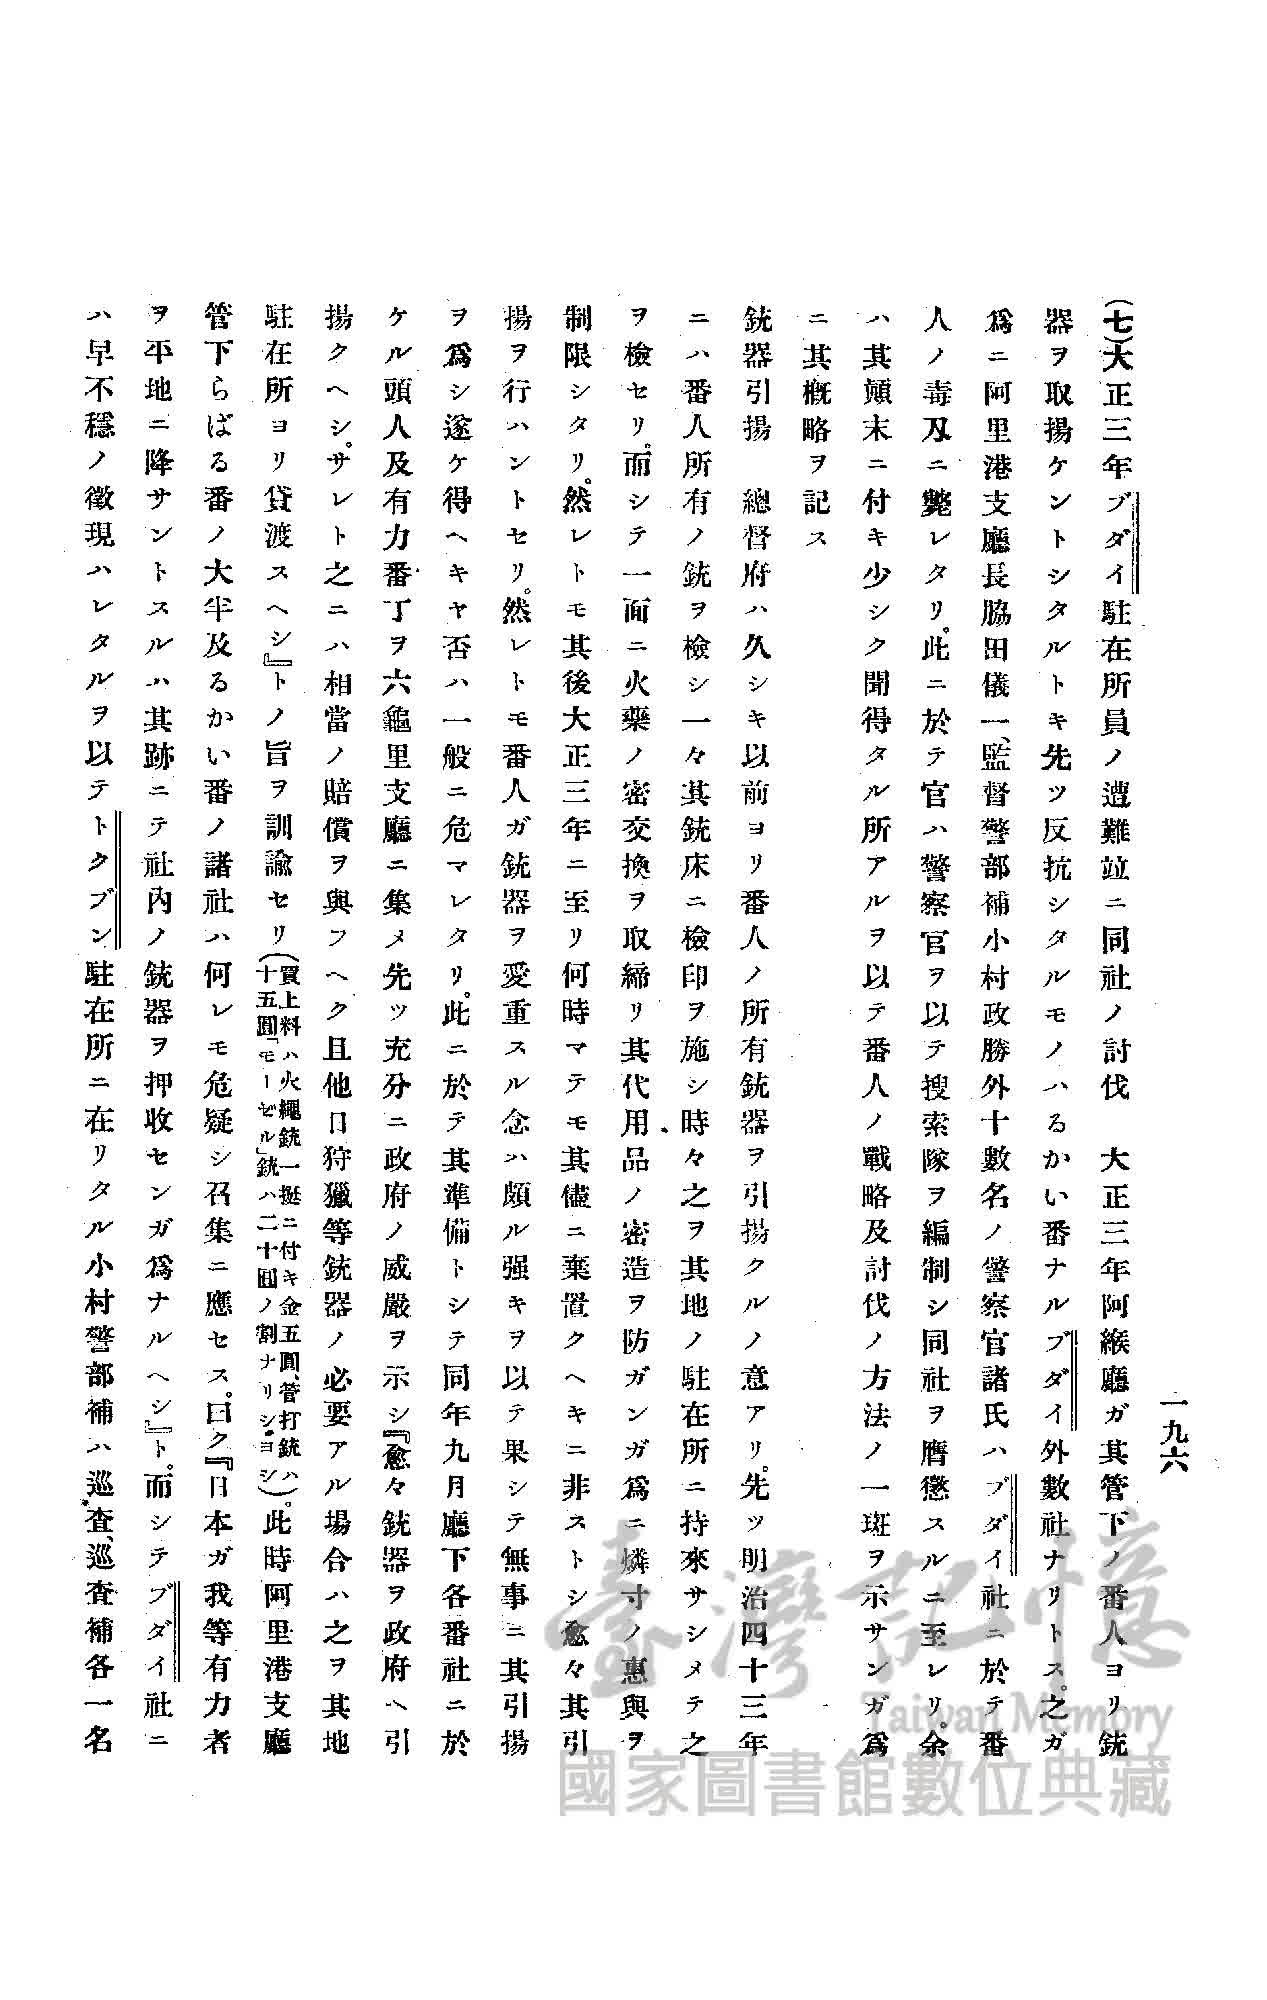 一九六
(七)大正三年ブダイ駐在所員ノ遭難竝ニ同社ノ討伐　大正三年阿緱廳ガ其管下ノ番人ヨリ銃
器ヲ取揚ケントシタルトキ先ツ反抗シタルモノハるかい番ナルブダイ外數社ナリトス。之ガ
爲ニ阿里港支廳長脇田儀一、監督警部補小村政勝外十數名ノ警察官諸氏ハブダイ社ニ於テ番
人ノ毒刄ニ斃レタリ。此ニ於テ官ハ警察官ヲ以テ搜索隊ヲ編制シ同社ヲ膺懲スルニ至レリ。余
ハ其顛末ニ付キ少シク聞得タル所アルヲ以テ番人ノ戰略及討伐ノ方法ノ一斑ヲ示サンガ爲
ニ其槪略ヲ記ス
銃器引揚　總督府ハ久シキ以前ヨリ番人ノ所有銃器ヲ引揚クルノ意アリ。先ツ明治四十三年
ニハ番人所有ノ銃ヲ檢シ一々其銃床ニ檢印ヲ施シ時々之ヲ其地ノ駐在所ニ持來サシメテ之
ヲ檢セリ。而シテ一面ニ火藥ノ密交換ヲ取締リ其代用品ノ密造ヲ防ガンガ爲ニ燐寸ノ惠與ヲ
制限シタリ。然レトモ其後大正三年ニ至リ何時マテモ其儘ニ棄置クヘキニ非ストシ愈々其引
揚ヲ行ハントセリ。然レトモ番人ガ銃器ヲ愛重スル念ハ頗ル强キヲ以テ果シテ無事ニ其引揚
ヲ爲シ遂ケ得ヘキヤ否ハ一般ニ危マレタリ。此ニ於テ其準備トシテ同年九月廳下各番社ニ於
ケル頭人及有力番丁ヲ六龜里支廳ニ集メ先ツ充分ニ政府ノ威嚴ヲ示シ『愈々銃器ヲ政府ヘ引
揚クヘシ。サレト之ニハ相當ノ賠償ヲ與フヘク且他日狩獵等銃器ノ必要アル場合ハ之ヲ其地
駐在所ヨリ貸渡スヘシ』トノ旨ヲ訓諭セリ(買上料ハ火繩銃一挺ニ付キ金五圓、管打銃ハ十五圓「モーゼル」銃ハ二十圓ノ割ナリシヨシ)。此時阿里港支廳
管下らばる番ノ大半及るかい番ノ諸社ハ何レモ危疑シ召集ニ應セス。曰ク『日本ガ我等有力者
ヲ平地ニ降サントスルハ其跡ニテ社內ノ銃器ヲ押收センガ爲ナルヘシ』ト。而シテブダイ社ニ
ハ早不穩ノ徵現ハレタルヲ以テトクブン駐在所ニ在リタル小村警部補ハ巡査、巡査補各一名
臺灣記憶
Taiwan Memory
國家圖書館數位典藏